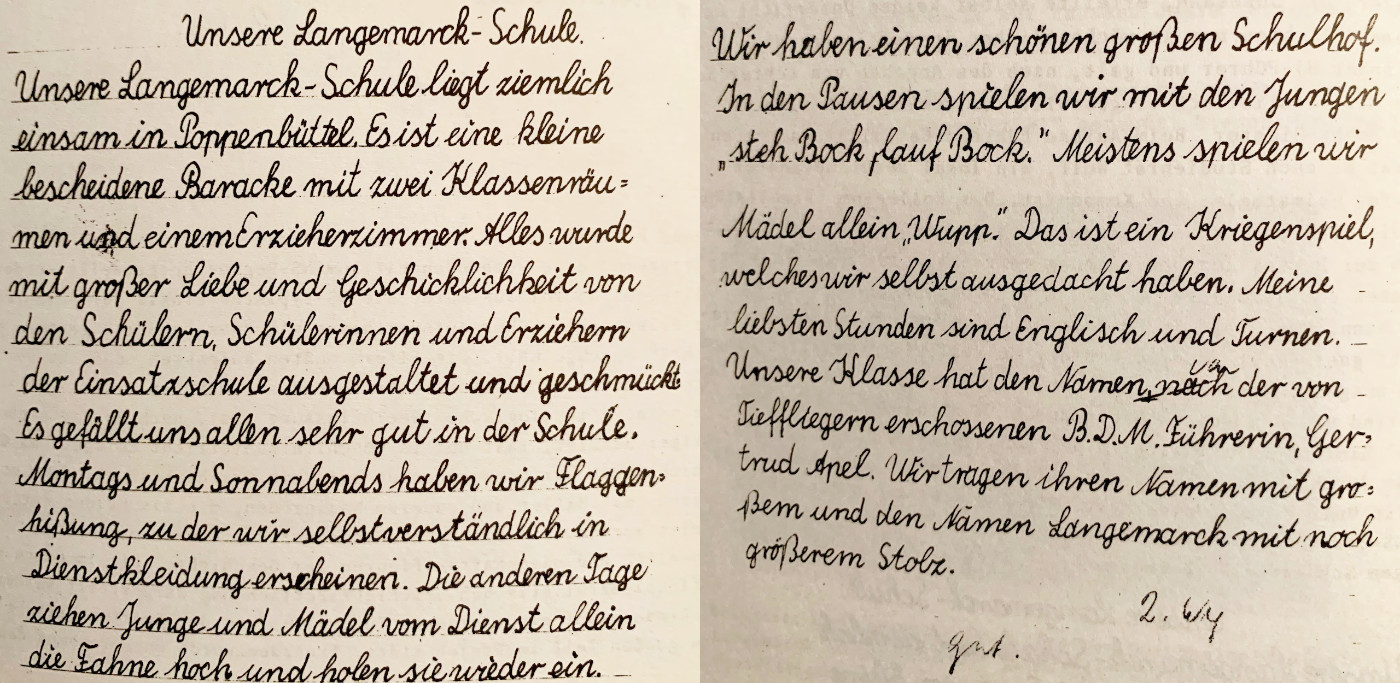 Unsere Langemarck-Schule.
Unsere Langemarck-Schule liegt ziemlich
einsam in Poppenbüttel. Es ist eine kleine
bescheidene Baracke mit zwei Klassenräu=
men und einem Erzieherzimmer. Alles wurde
mit großer Liebe und Geschicklichkeit von
den Schülern, Schülerinnen und Erziehern
der Einsatzschule ausgestaltet und geschmückt
Es gefällt uns allen sehr gut in der Schule.
Montags und Sonnabends haben wir Flaggen=
hißung, zu der wir selbstverständlich in
Dienstkleidung erscheinen. Die anderen Tage
ziehen Junge und Mädel vom Dienst allein
die Fahne hoch und holen sie wieder ein.
Wir haben einen schönen großen Schulhof.
In den Pausen spielen wir mit den Jungen
„steh Bock, lauf Bock.“ Meistens spielen wir
Mädel allein „Wupp.“ Das ist ein Kriegenspiel,
welches wir selbst ausgedacht haben. Meine
liebsten Stunden sind Englisch und Turnen.
Unsere Klasse hat den Namen, nach der von
Tieffliegern erschossenen B.D.M. Führerin, Ger=
trud Apel. Wir tragen ihren Namen mit gro=
ßem und den Namen Langemarck mit noch
größerem Stolz.
2.
gut.